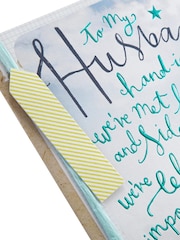 To My
Husba
hand i
we've met
and Sid
we're
impo